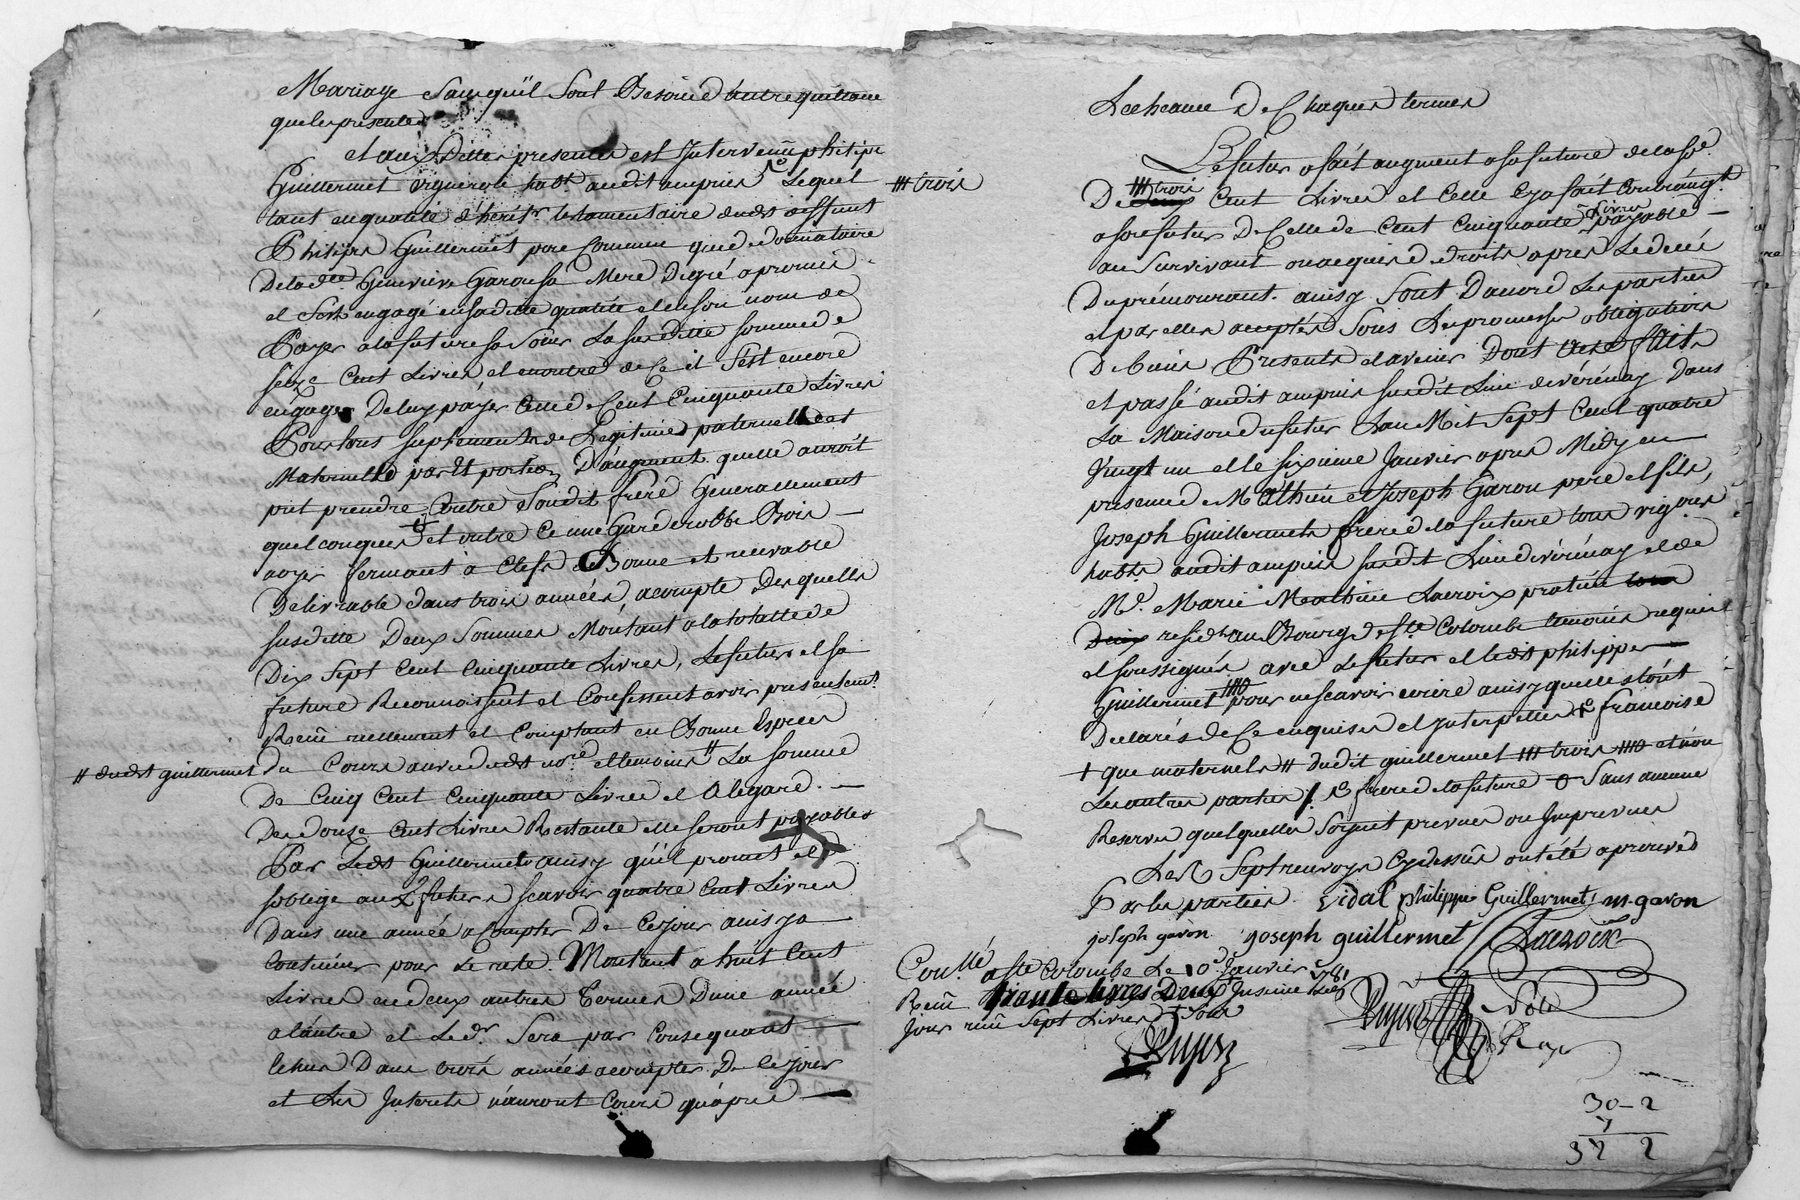 Mariage Sans quïl Soit Besoin d'autre quittance
que les presentes
et aux Dittes presentes est Intervenu philipe
Guillermet vigneron habt. audit ampuis Lequel
tant en qualité d'herit.r testamentaire dudt deffunt
Philipe Guillermet pere Comme que de donnataire
De lade. Genevieve Garon sa Mere De gré a promis
et s'est engagé en sa ditte qualité et en son nom de
Payer a la future sa soeur La susditte somme de
seize Cent Livres et en outre de Ce il s'est encore
engagé De luy payer Celle de Cent Cinquante Livres
Pour tous suplements de Legitimes paternelle et
Maternelle part et portion D'augment quelle auroit
put prendre Contre Sondit frere Generallement
quelconques et outre Ce une Garderobbe Bois
noyer fermant à Clefs Bonne et recevable
Delivrable dans trois années, acompte Desquelles
susditte Deux Sommes Montant a la totalle de
Dix Sept Cent Cinquante Livres, Le futur et sa
future Reconnoissent et Confessent avoir presentemt.
Recu reellement et Comptant en Bonne Especes
// dudt guillermet
du Cours au vu dudt no.re et temoins // La somme
De Cinq Cent Cinquante Livres et a legard
Des douze Cent Livres Restante elle seront payables
Par Ledt Guillermet ainsy qu'il promet et
s'oblige aux futurs scavoir quatre Cent Livres
Dans une année a Compter De Ce jour ainsy a
Continuer pour Le reste Montant a huit Cent
Livres en deux autres Termes D'une année
a l'autre et Le der. Sera par Consequant
Echus Dans trois années a compter De Ce jour
et Les Interets n'auront Cours qu'apres
Lecheance De Chaques termes
Le futur a fait augment a sa future de la so.e
# trois
De deux # trois Cent Livres et Celle Cy a fait Contraugt.
a son futur De Celle de Cent Cinquante Livres payable
au Survivant ou acquis de droits apres Le decés
Du prémourant. ainsy Sont D'acord Les parties
et par elles acceptés Sous Les promesses obligations
De biens Presents et avenir Dont acte fait
et passé audit ampuis susdit Lieu de vérénay Dans
La Maison du futur L'an Mil Sept Cent quatre
Vingt un et le sixieme Janvier apres Midy en
presence de Mathieu et Joseph Garon pere et fils,
Joseph Guillermet frere de la future tous vigrons
habts audit ampuis susdit Lieu de vérénay et de
Me. Marie Mathieu Lacroix praticien tous
Deux resid.t au Bourg de Ste Colombe temoins requis
et soussignés avec Le futur et ledt philippe
Guillermet pour ne scavoir ecrire ainsy quelles l'ont
Declarés de Ce enquises et Interpellés francoise
+ que maternels // dudit guillermet # trois #o et non
Les autres parties frere de la future o Sans aucune
Reserves quelquelles Soyent prevues ou Imprevues
Les Sept renvoys Cy dessus ont été aprouvés
Par les parties. vidal philippe Guillermet m. garon
joseph garon joseph guillermet Lacroix
Coullé a ste Colombe Le 10e Janvier 1781
Recu trante livres Deux
Jour recu Sept Livres
Dujon
Dujon
30 - 2
7
37 2